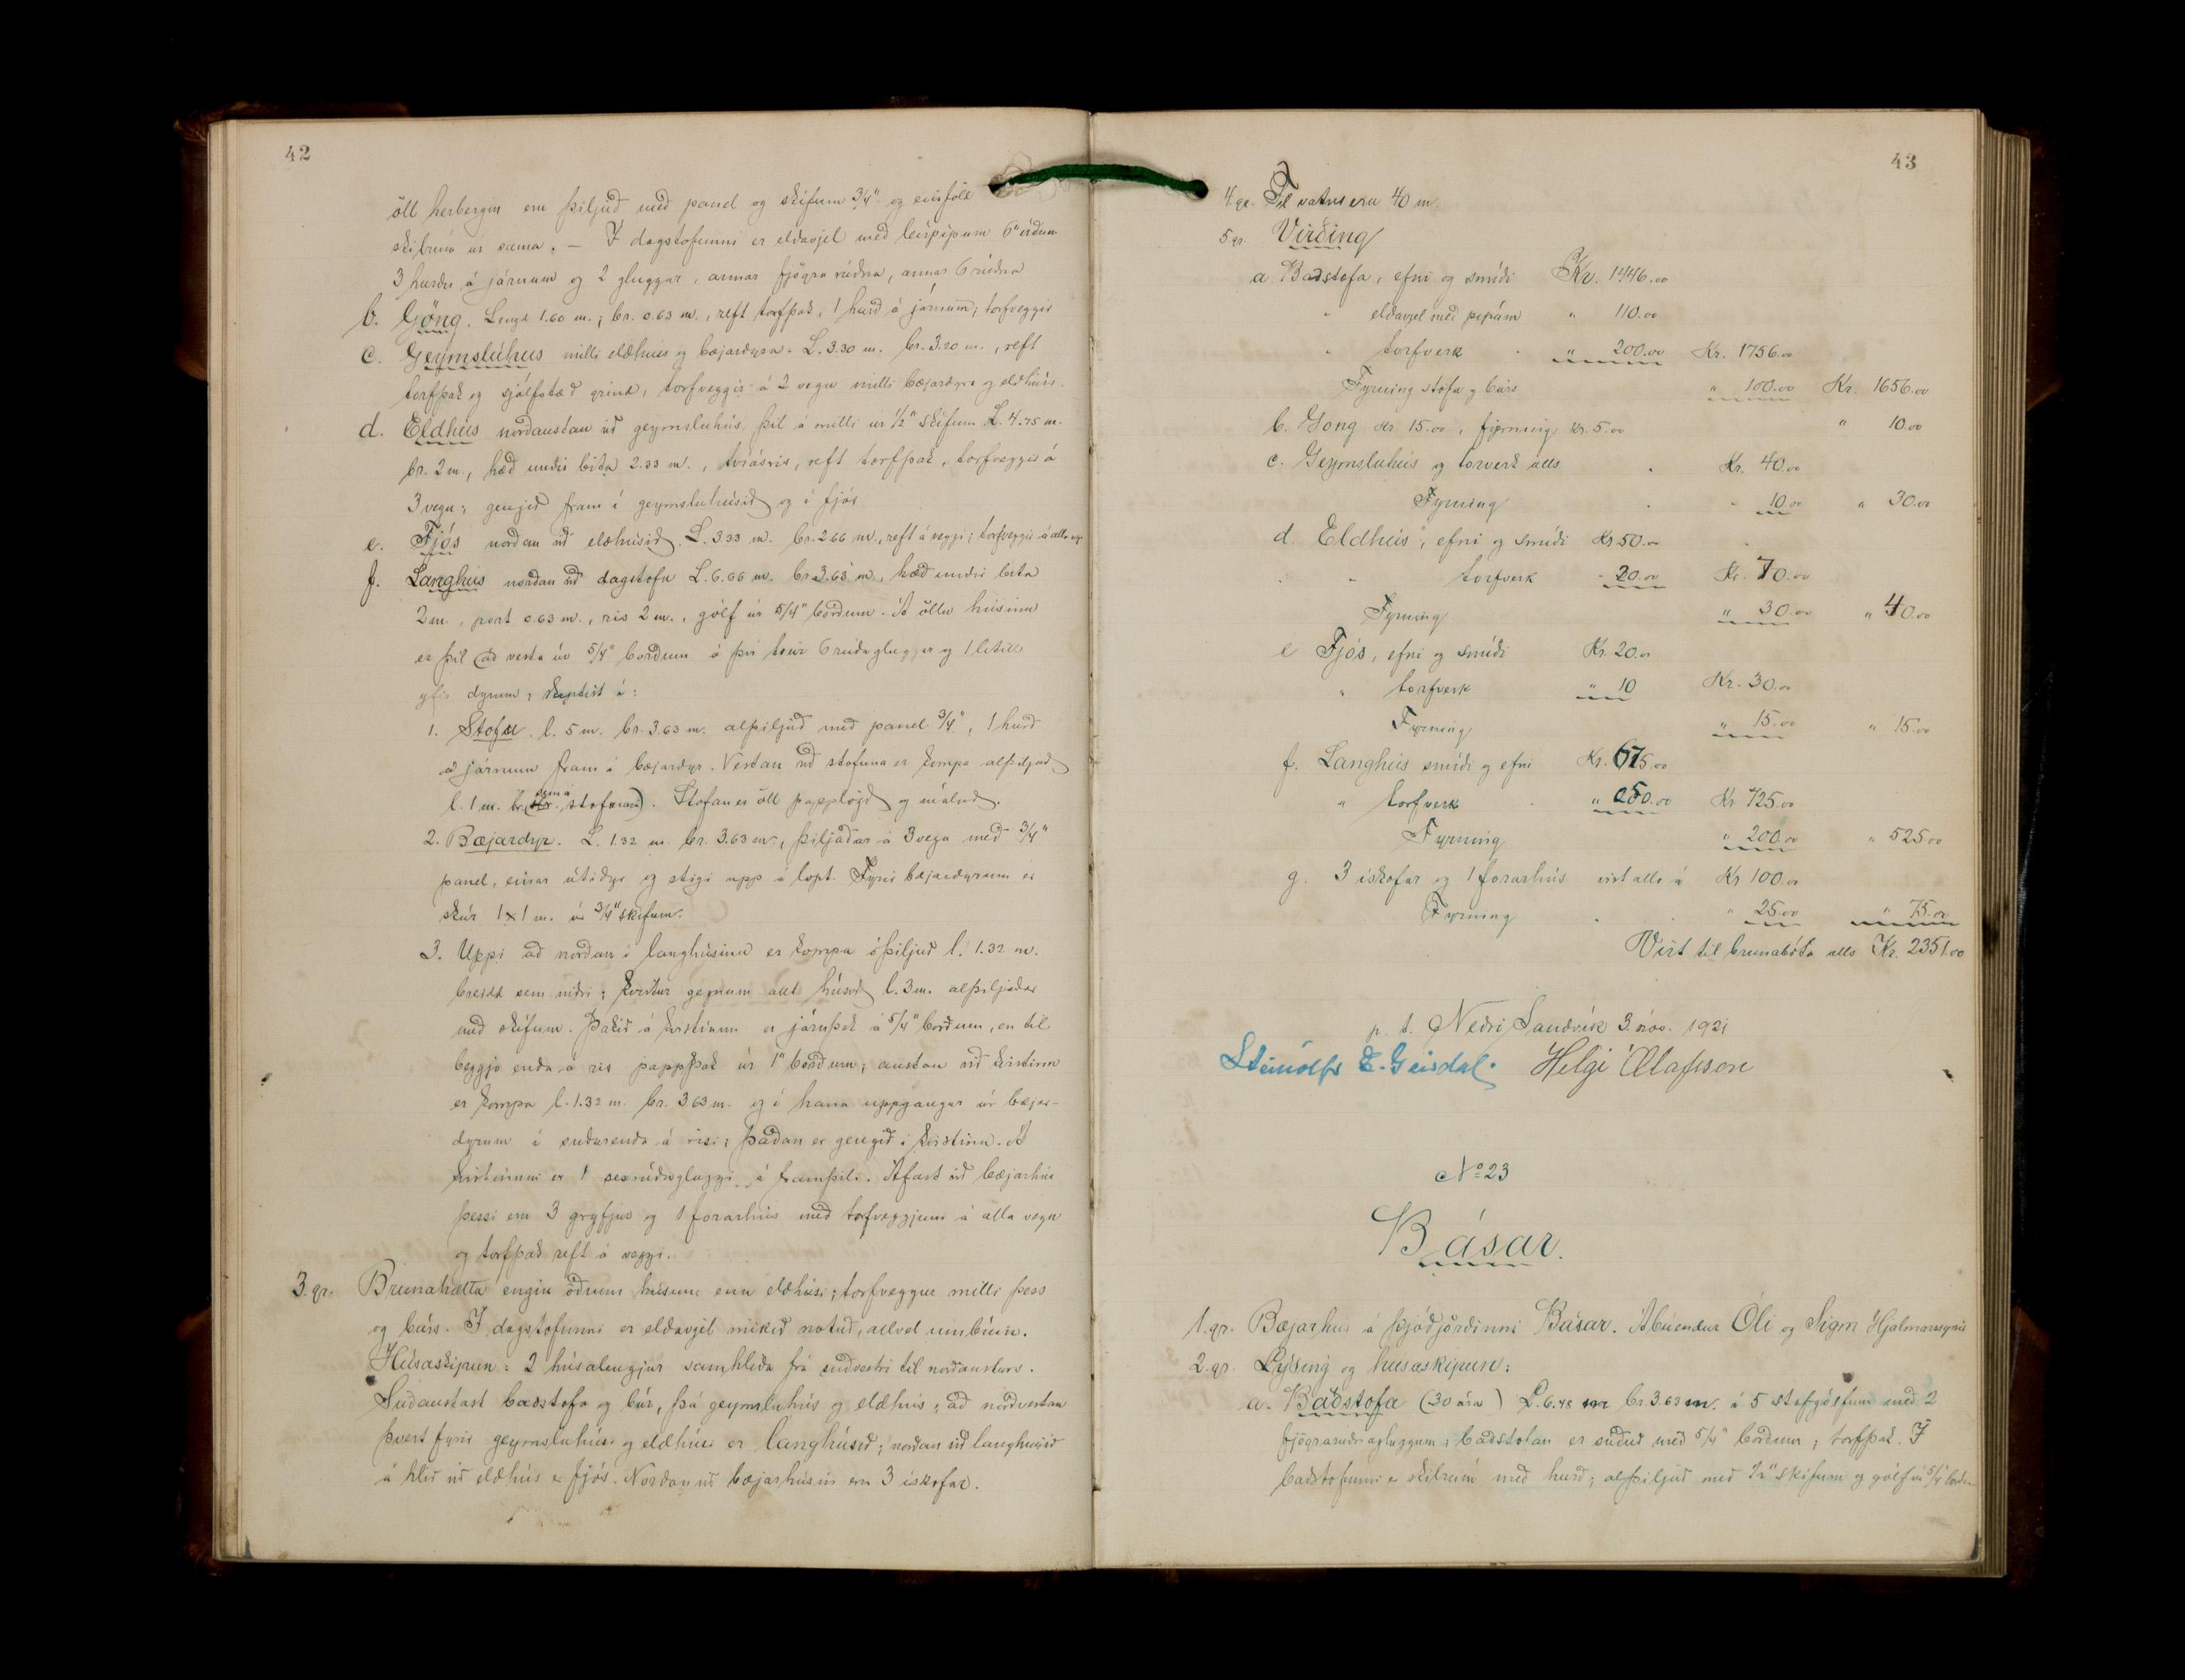 42
öll herbergin eru þiljuð með panel og skífum 3/4" og einföld
skilrúm úr sama. — Í dagstofunni er eldavjel með leirpípum 6" víðum
3 hurðir á járnum og 2 gluggar, annar fjögra rúðna, annar 6 rúðna
b. Göng. Lengd 1.60 m.; br. 0.63 m., reft torfþak, 1 hurð á járnum; torfveggir
c. Geymsluhús milli eldhúss og bæjardyra. L. 3.30 m. br. 3.20 m., reft
torfþak og sjálfstæð grind, torfveggir á 2 vegu milli bæjardyra og eldhúss.
d. Eldhús norðaustan við geymsluhús, þil á milli úr 1/2" skífum. L. 4.75 m.
br. 2 m., hæð undir bita 2.33 m., tvíásris, reft torfþak, torfveggir á
3 vegu; gengið fram í geymsluhúsið og í fjós
e. Fjós norðan við eldhúsið. L. 3.33 m. br. 2.66 m., reft á veggi; torfveggir á alla vegu
f. Langhús norðan við dagstofu L. 6.66 m. br. 3.63 m., hæð undir bita
2 m., port 0.63 m., ris 2 m., gólf úr 5/4" borðum. Á öllu húsinu
er þil að vestan úr 5/4" borðum á því tveir 6 rúðugluggar og 1 lítill
yfir dyrum; skiptist í:
1. Stofu l. 5 m. br. 3.63 m. alþiljuð með panel 3/4", 1 hurð
á járnum fram í bæjardyr. Vestan við stofuna er kompa alþiljuð
l. 1 m. br. (sem á stofunni). Stofan er öll papplögð og máluð.
2. Bæjardyr. L. 1.32 m. br. 3.63 m., þiljaðar á 3 vegu með 3/4"
panel, einar útidyr og stigi upp á lopt. Fyrir bæjardyrum er
skúr 1 x 1 m. úr 3/4" skífum.
3. Uppi að norðan í langhúsinu er kompa óþiljuð l. 1.32 m.
breidd sem niðri; kvistur gegnum allt húsið l. 3 m. alþiljaður
með skífum. Þakið á kvistinum er járnþak á 5/4" borðum, en til
beggja enda á ris pappþak úr 1" borðum; austan við kvistinn
er kompa l. 1.32 m. br. 3.63 m. og í hana uppgangur úr bæjar-
dyrum í suðurenda á risi; þaðan er gengið í kvistinn. Á
kvistinum er 1 sexrúðugluggi á framþili. Áfast við bæjarhús
þessi eru 3 gryfjur og 1 forarhús með torfveggjum á alla vegu
og torfþak reft á veggi.
3. gr. Brunahætta engin öðrum húsum enn eldhúsi; torfveggur milli þess
og búrs. Í dagstofunni er eldavjel mikið notuð, allvel umbúin.
Húsaskipun: 2 húsalengjur samhliða frá suðvestri til norðausturs.
Suðaustast baðstofa og búr, þá geymsluhús og eldhús; að norðvestan
þvert fyrir geymsluhúsi og eldhúsi er langhúsið; norðan við langhúsið
á hlið við eldhús er fjós. Norðan við bæjarhúsin eru 3 ískofar.
43
4. gr. Til vatns eru 40 m.
5 gr. Virðing
a Baðstofa, efni og smíði Kr. 1446.00
" eldavjel með pípum " 110.00
" torfverk " 200.00 Kr. 1756.00
Fyrning stofu og búrs " 100.00 Kr. 1656.00
b. Göng Kr. 15.00, fyrning kr. 5.00 " 10.00
c. Geymsluhús og torverk alls Kr. 40.00
Fyrning " 10.00 " 30.00
d. Eldhús, efni og smíði Kr 50.00
" torfverk " 20.00 Kr. 70.00
Fyrning " 30.00 " 40.00
e Fjós, efni og smíði Kr. 20.00
" torfverk " 10 Kr. 30.00
Fyrning " 15.00 " 15.00
f. Langhús smíði og efni Kr. 675.00
" torfverk " 050.00 Kr 725.00
Fyrning " 200.00 " 525.00
g. 3 ískofar og 1 forarhús virt alls á Kr 100.00
Fyrning " 25.00 " 75.00
Virt til brunabóta alls Kr. 2351.00
p. t. Neðri Sandvík 3. nóv. 1921
Steinólfr E. Geirdal. Helgi Ólafsson
No 23
Básar.
1. gr. Bæjarhús á þjóðjörðinni Básar. Ábúendur Óli og Sigm Hjálmarssynir
2. gr. Lýsing og húsaskipun:
a. Baðstofa (30 ára) L. 6.48 m br 3.63 m. á 5 stafgólfum með 2
fjögrarúðugluggum; baðstofan er súðuð með 5/4" borðum; torfþak. Í
baðstofunni er skilrúm með hurð; alþiljuð með 1/2" skífum og gólf úr 5/4" borðum